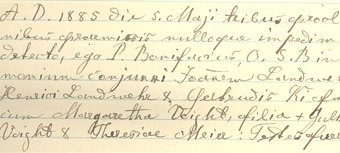 A. D. 1885 die 5. Maji tribus procl
nibus praemissis nulloque impedim
detecto, ego P. Bonifacius, O. S. B in
monium conjunxi Joannem Landwe
Henrici Landwehr & Gertrudis
cum Margaretha Voight, filia +
Voight & Theresiae Meier: Testes fuer